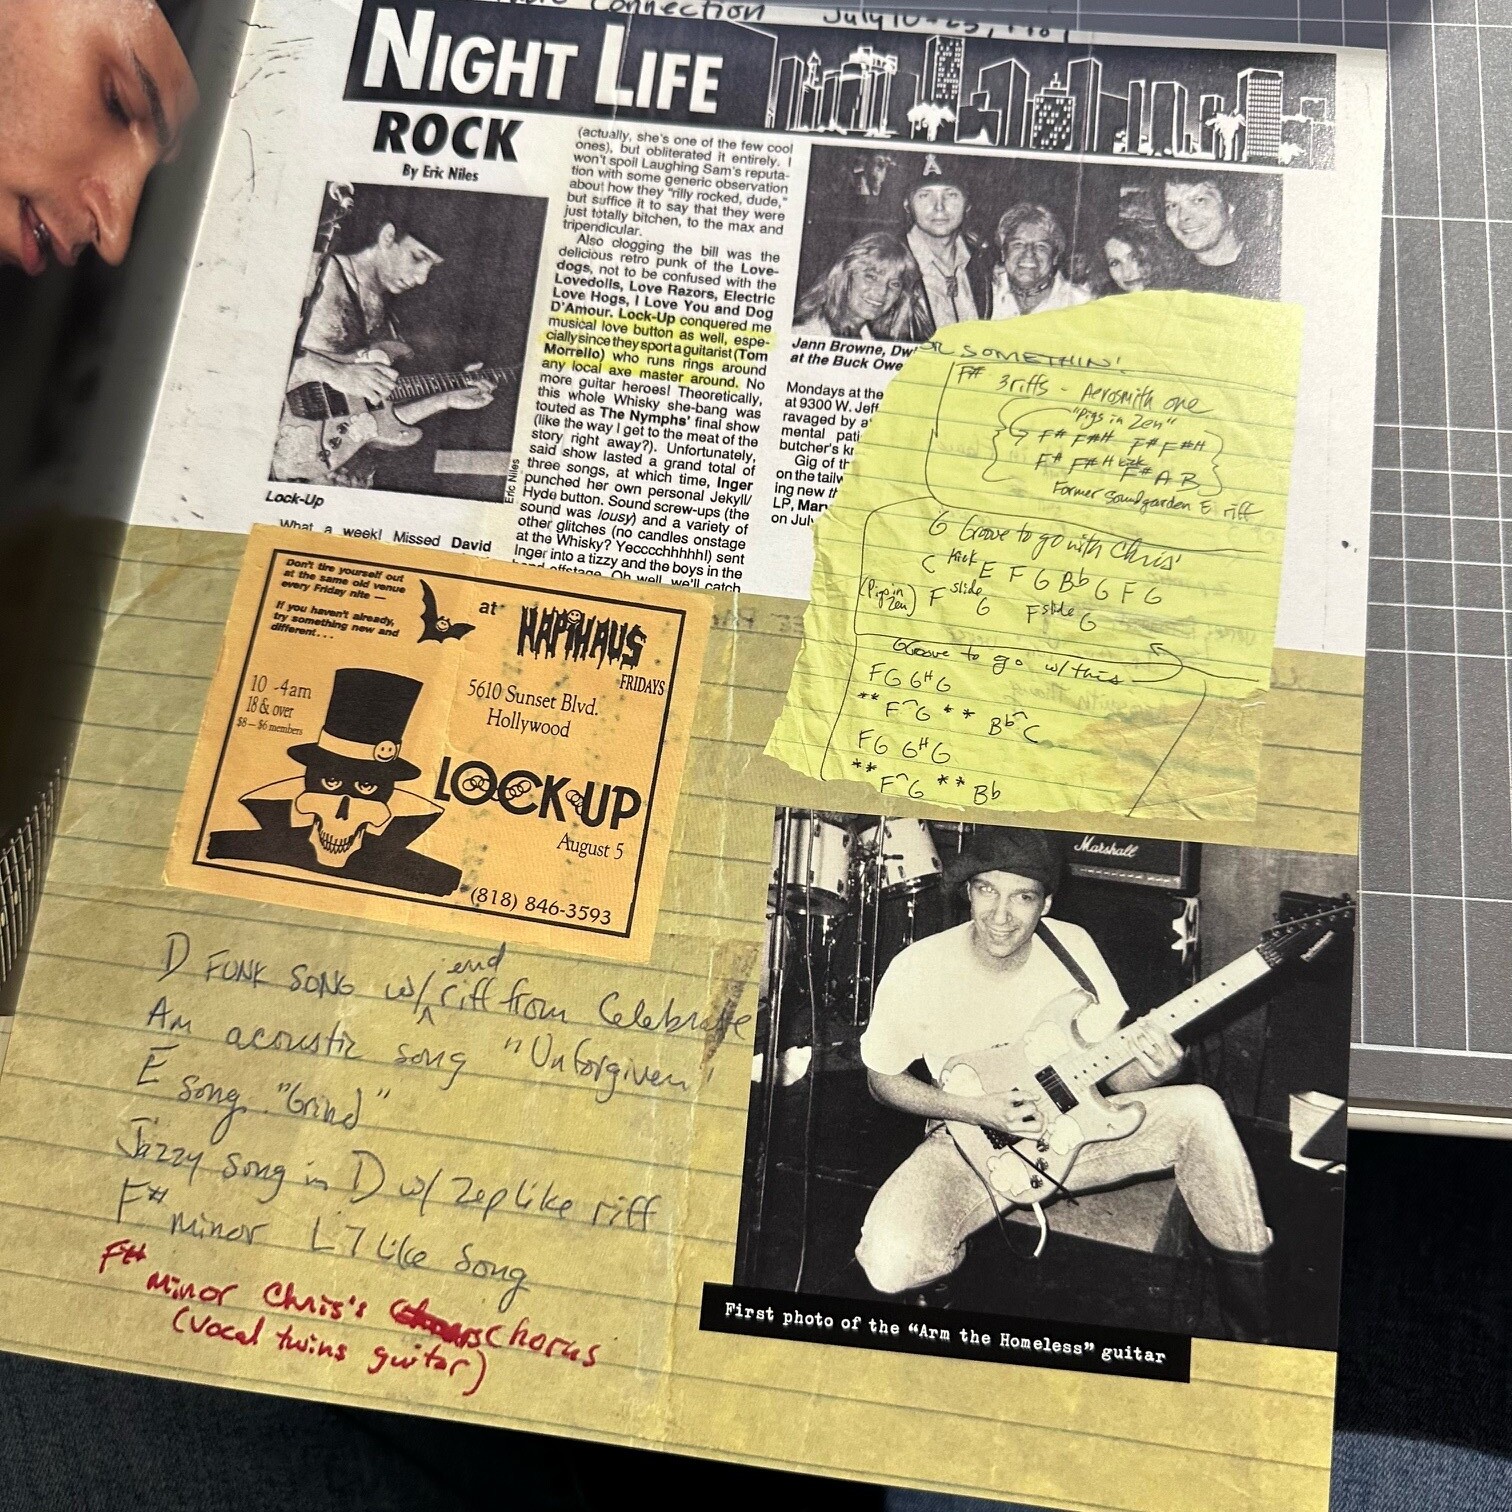 Connection July 10-23, 1989
NIGHT LIFE
ROCK
By Eric Niles
Eric Niles
Lock-Up
What a week! Missed David
(actually, she's one of the few cool
ones), but obliterated it entirely. I
won't spoil Laughing Sam's reputa-
tion with some generic observation
about how they "rilly rocked, dude,"
but suffice it to say that they were
just totally bitchen, to the max and
tripendicular.
Also clogging the bill was the
delicious retro punk of the Love-
dogs, not to be confused with the
Lovedolls, Love Razors, Electric
Love Hogs, I Love You and Dog
D'Amour. Lock-Up conquered me
musical love button as well, espe-
cially since they sport a guitarist (Tom
Morrello) who runs rings around
any local axe master around. No
more guitar heroes! Theoretically,
this whole Whisky she-bang was
touted as The Nymphs' final show
(like the way I get to the meat of the
story right away?). Unfortunately,
said show lasted a grand total of
three songs, at which time, Inger
punched her own personal Jekyll/
Hyde button. Sound screw-ups (the
sound was lousy) and a variety of
other glitches (no candles onstage
at the Whisky? Yeccccchhhhh!) sent
Inger into a tizzy and the boys in the
band offstage. Oh well, we'll catch
Jann Browne, Dw
at the Buck Owe
Mondays at the
at 9300 W. Jeff
ravaged by a
mental pati
butcher's kn
Gig of th
on the tailw
ing new
LP, Mary
on July
OR SOMETHIN'!
F# 3 riffs - Aerosmith one
"Pigs in Zen"
G F# F#H F#F#H
F# F#H F# A B
Former Soundgarden E riff
G Groove to go with Chris'
C kick E F G Bb G F G
(Pigs in Zen) F slide G F slide G
Groove to go w/ this
FG GHG
** F^G ** Bb^C
FG GHG
** F^G ** Bb
Don't tire yourself out
at the same old venue
every Friday nite —
If you haven't already,
try something new and
different . . .
at HAPIHAUS
FRIDAYS
5610 Sunset Blvd.
Hollywood
10 -4am
18 & over
$8 – $6 members
LOCK UP
August 5
(818) 846-3593
D FUNK SONG w/ end riff from Celebrate
Am acoustic song "Unforgiven"
E song "Grind"
Jazzy song in D w/ Zep like riff
F# minor L7 like song
F# minor Chris's Chorus
(vocal twins guitar)
Marshall
First photo of the "Arm the Homeless" guitar